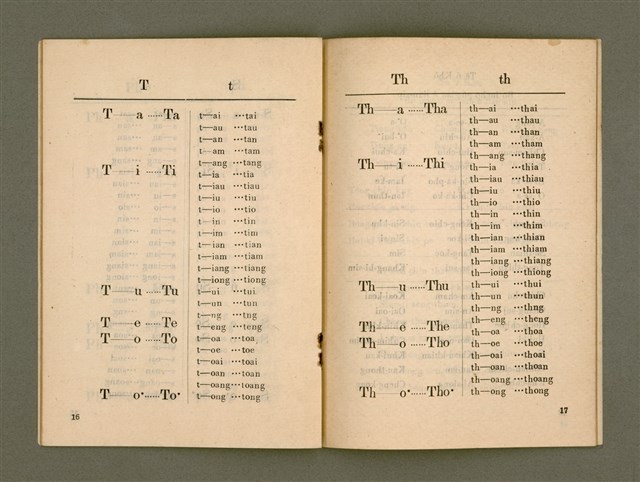 T t
T—a ......Ta
T—i ......Ti
T—u ......Tu
T—e ......Te
T—o ......To
T—o͘ ......To͘
t—ai ...tai
t—au ...tau
t—an ...tan
t—am ...tam
t—ang ...tang
t—ia ...tia
t—iau ...tiau
t—iu ...tiu
t—io ...tio
t—in ...tin
t—im ...tim
t—ian ...tian
t—iam ...tiam
t—iang ...tiang
t—iong ...tiong
t—ui ...tui
t—un ...tun
t—ng ...tng
t—eng ...teng
t—oa ...toa
t—oe ...toe
t—oai ...toai
t—oan ...toan
t—oang...toang
t—ong ...tong
16
Th th
Th—a ......Tha
Th—i ......Thi
Th—u ......Thu
Th—e ......The
Th—o ......Tho
Th—o͘ ......Tho͘
th—ai ...thai
th—au ...thau
th—an ...than
th—am ...tham
th—ang ...thang
th—ia ...thia
th—iau ...thiau
th—iu ...thiu
th—io ...thio
th—in ...thin
th—im ...thim
th—ian ...thian
th—iam ...thiam
th—iang ...thiang
th—iong ...thiong
th—ui ...thui
th—un ...thun
th—ng ...thng
th—eng ...theng
th—oa ...thoa
th—oe ...thoe
th—oai ...thoai
th—oan ...thoan
th—oang ...thoang
th—ong ...thong
17